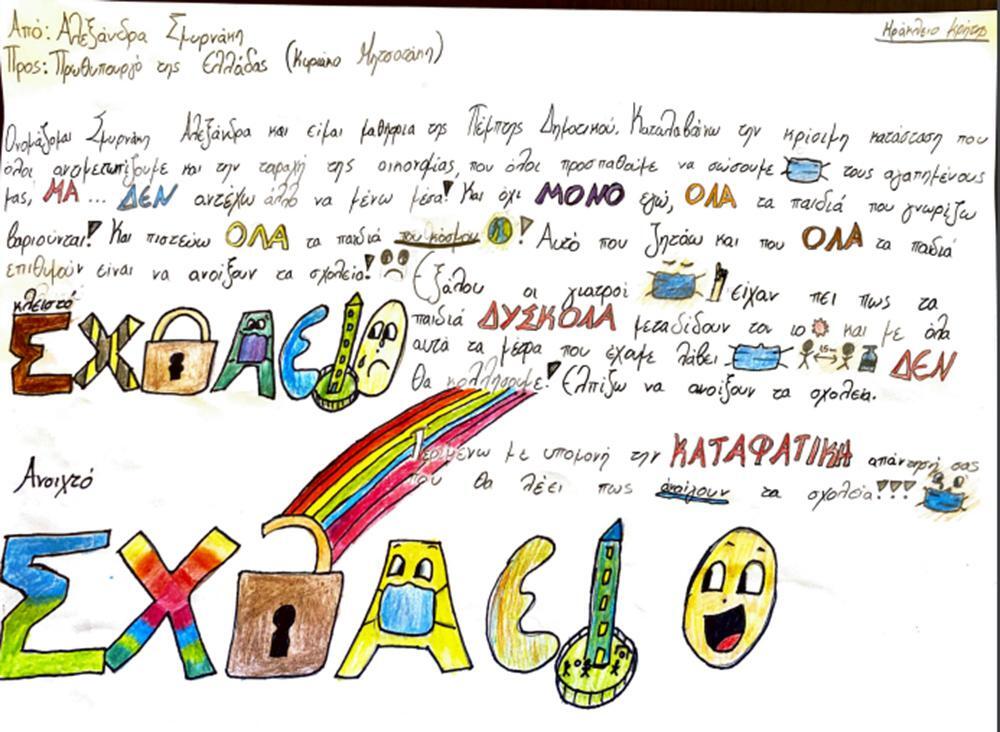 Από: Αλεξάνδρα Σμυρνάκη
Ηράκλειο Κρήτης
Προς: Πρωθυπουργό της Ελλάδας (Κυριάκο Μητσοτάκη)
Ονομάζομαι Σμυρνάκη Αλεξάνδρα και είμαι μαθήτρια της Πέμπτης Δημοτικού. Καταλαβαίνω την κρίσιμη κατάσταση που
όλοι αντιμετωπίζουμε και την ταραχή της οικογένειας, που όλοι προσπαθούμε να σώσουμε τους αγαπημένους
μας, ΜΑ... ΔΕΝ αντέχω άλλο να μένω μέσα! Και όχι ΜΟΝΟ εγώ, ΟΛΑ τα παιδιά που γνωρίζω
βαριούνται! Και πιστεύω ΟΛΑ τα παιδιά του κόσμου! Αυτό που ζητάω και που ΟΛΑ τα παιδιά
επιθυμούν είναι να ανοίξουν τα σχολεία!
Εξάλου οι γιατροί είχαν πει πως τα
παιδιά ΔΥΣΚΟΛΑ μεταδίδουν τον ιο και με όλα
αυτά τα μέτρα που έχουμε λάβει ΔΕΝ
θα κολλήσουμε! Ελπίζω να ανοίξουν τα σχολεία.
κλειστό
ΣΧΟΛΕΙΟ
Περιμένω με υπομονή την ΚΑΤΑΦΑΤΙΚΗ απάντηση σας
που θα λέει πως ανοίγουν τα σχολεία!!!
Ανοιχτό
ΣΧΟΛΕΙΟ